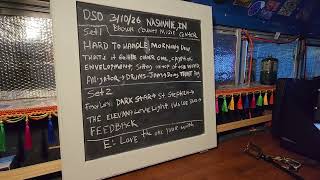 DSO 3/10/26 NASHVILLE, IN
Set 1 Brown County Music Center
HARD TO HANDLE, MORNING DEW
THAT'S IT FOR THE OTHER ONE, CRYPTICAL
ENVELOPMENT, SITTIN ON TOP OF THE WORLD
ALLIGATOR → DRUMS → JAM → GOING
Set 2
DARK STAR → ST. STEPHEN →
THE ELEVEN → LOVE LIGHT
FEEDBACK
E: LOVE THE ONE YOUR WITH